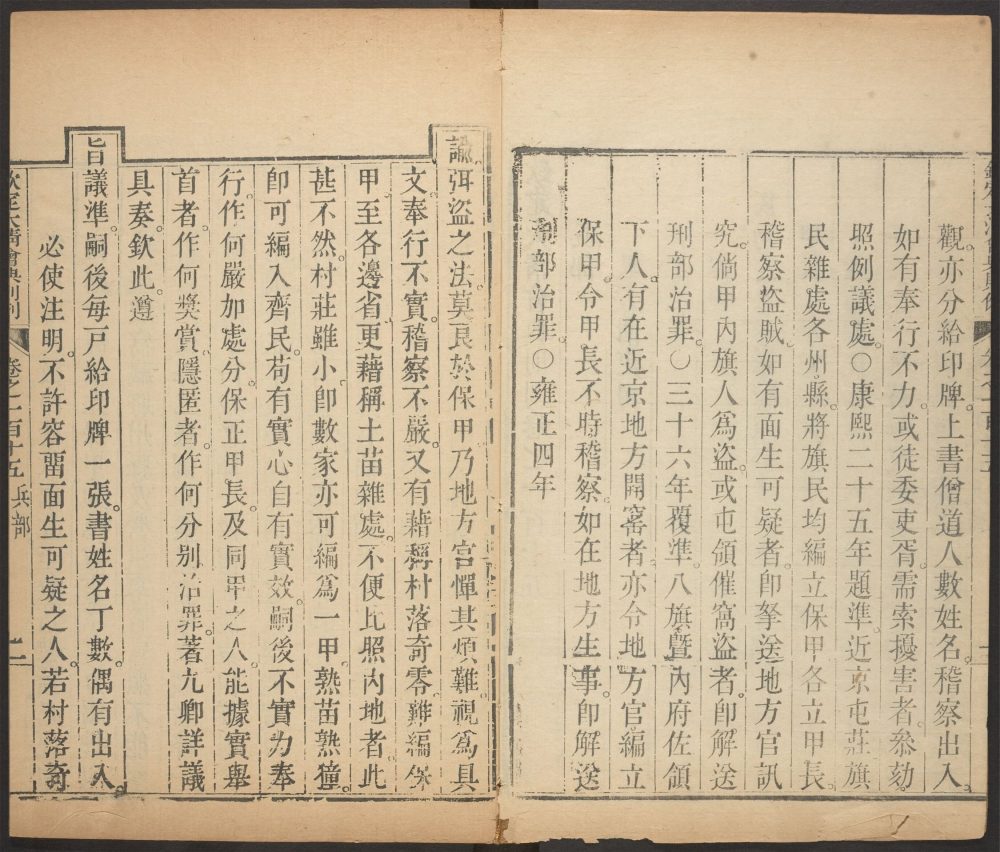 觀。亦分給印牌。上書僧道人數姓名。稽察出入。
如有奉行不力。或徒委吏胥。需索擾害者。叅劾。
照例議處。○康熙二十五年題準。近京屯莊。旗
民雜處。各州縣。將旗民均編立保甲。各立甲長。
稽察盜賊。如有面生可疑者。卽拏送地方官訊
究。倘甲內旗人爲盜。或屯領催窩盜者。卽解送
刑部治罪。○三十六年覆準。八旗暨內府佐領
下人。有在近京地方開窰者。亦令地方官編立
保甲。令甲長不時稽察。如在地方生事。卽解送
刑部治罪。○雍正四年
諭。弭盜之法。莫良於保甲。乃地方官憚其煩難。視爲具
文。奉行不實。稽察不嚴。又有藉稱村落奇零。難編保
甲。至各邊省。更藉稱土苗雜處。不便比照內地者。此
甚不然。村莊雖小。卽數家亦可編爲一甲。熟苗熟獞。
卽可編入齊民。苟有實心。自有實效。嗣後不實力奉
行。作何嚴加處分。保正甲長。及同甲之人。能據實舉
首者。作何獎賞。隱匿者。作何分別治罪。著九卿詳議
具奏。欽此。遵
旨議準。嗣後每戸給印牌一張。書姓名丁數。偶有出入。
必使注明。不許容畱面生可疑之人。若村落奇
欽定大淸會典則例 卷之一百十五 兵部 二